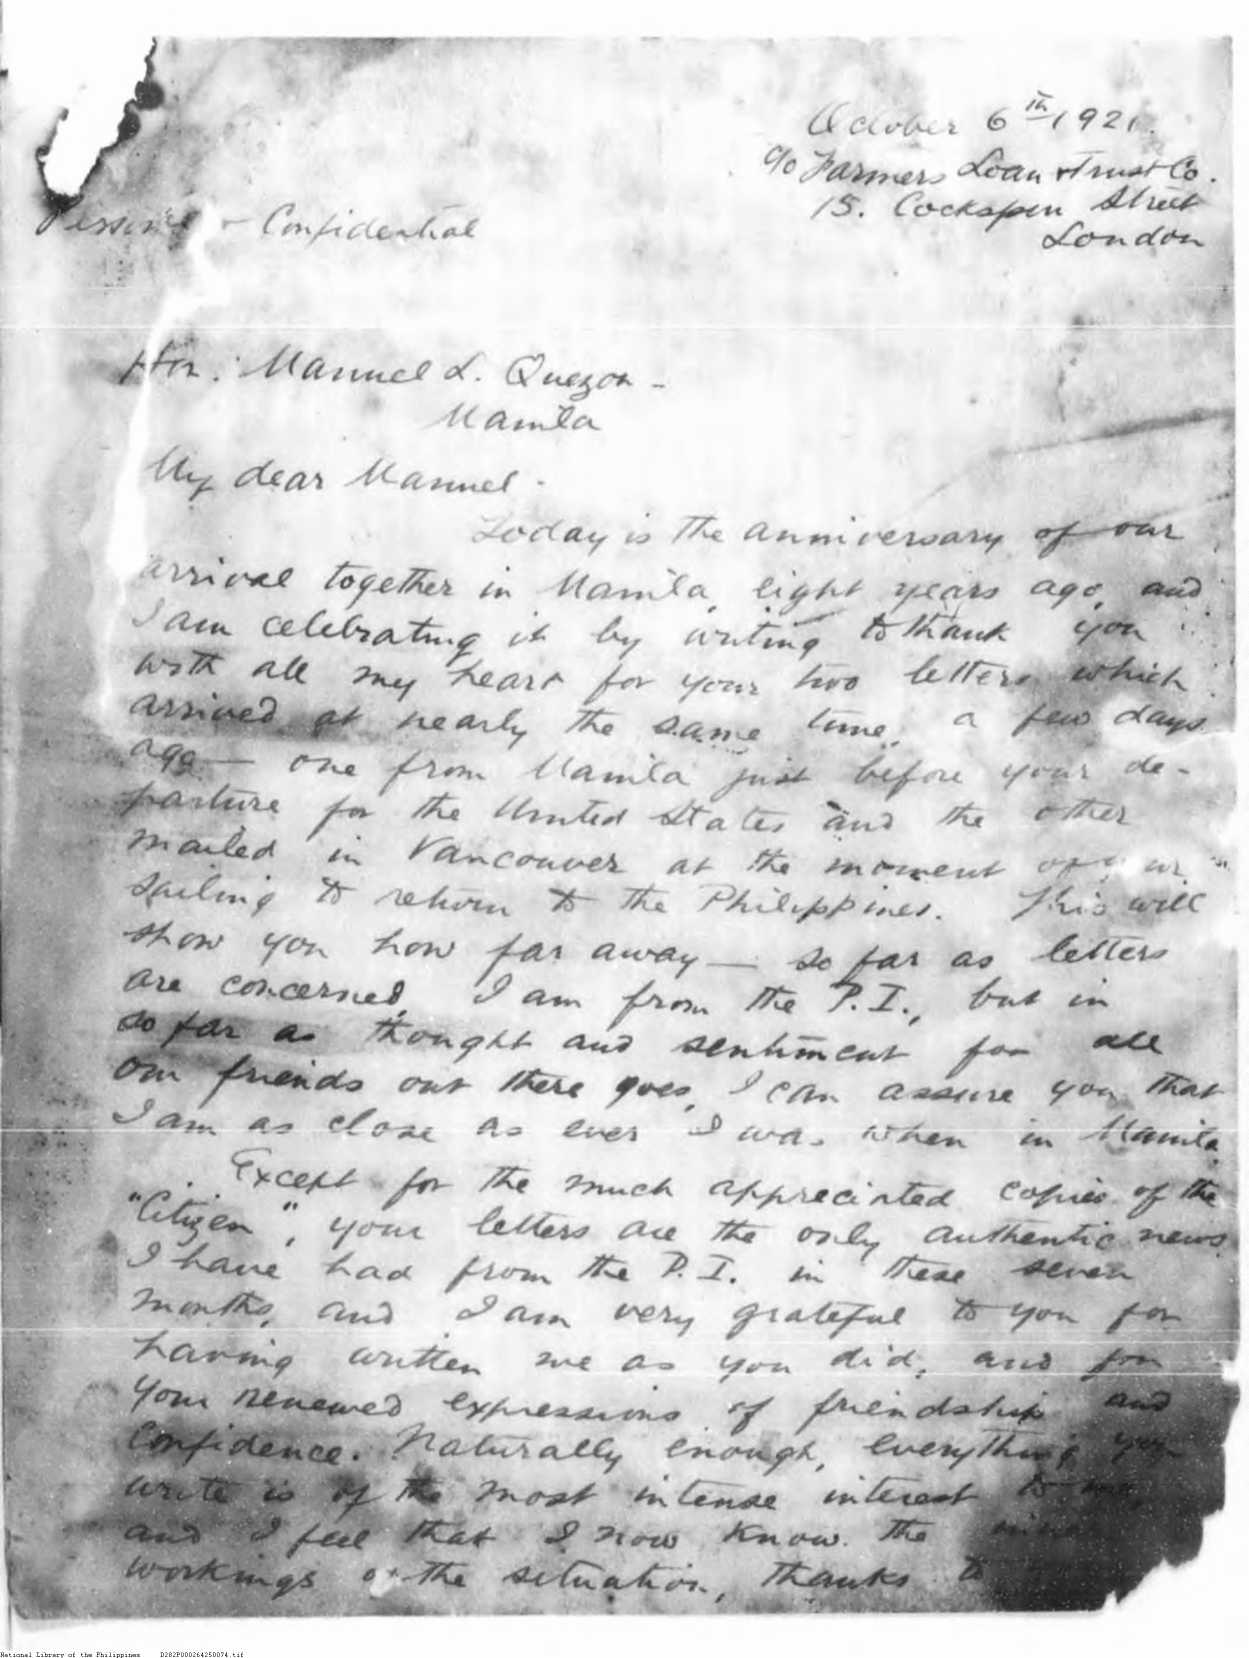 October 6th 1921.
c/o Farmers Loan & Trust Co.
15. Cockspur Street
London
Personal & Confidential
Hon: Manuel L. Quezon -
Manila
My dear Manuel -
Today is the anniversary of our
arrival together in Manila, eight years ago, and
I am celebrating it by writing to thank you
with all my heart for your two letters which
arrived at nearly the same time, a few days
ago — one from Manila just before your de-
parture for the United States and the other
mailed in Vancouver at the moment of
sailing to return to the Philippines. This will
show you how far away — so far as letters
are concerned, I am from the P.I., but in
so far as thought and sentiment for all
our friends out there goes, I can assure you that
I am as close as ever I was when in Manila.
Except for the much appreciated copies of the
"Citizen", your letters are the only authentic news
I have had from the P.I. in these seven
months, and I am very grateful to you for
having written me as you did, and for
your renewed expressions of friendship and
confidence. Naturally enough, everything you
write is of the most intense interest to me,
and I feel that I now know the
workings of the situation, thanks to
National Library of the Philippines D282P000264250074.tif